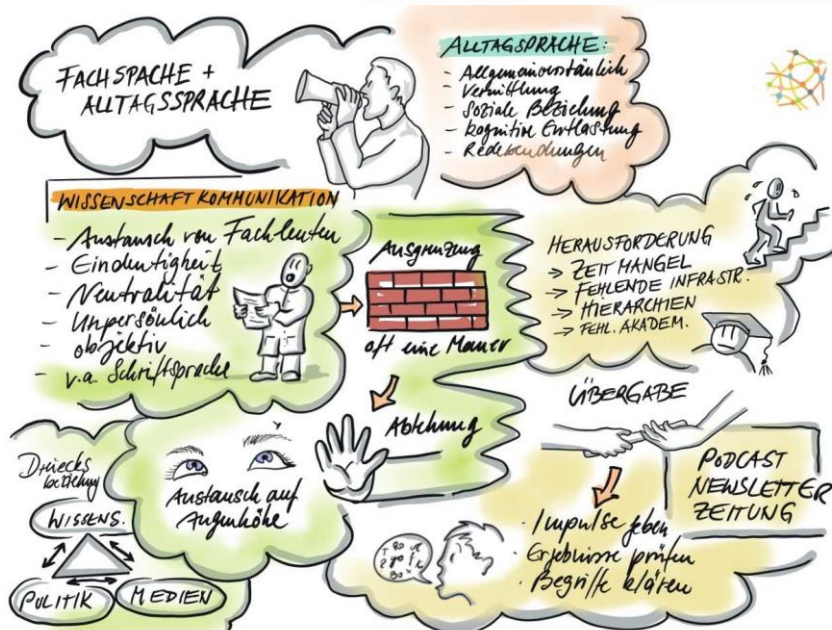 FACHSPACHE +
ALLTAGSSPRACHE
ALLTAGSPRACHE:
- Allgemeinverständlich
- Vermittlung
- Soziale Beziehung
- kognitive Entlastung
- Redewendungen
WISSENSCHAFTKOMMUNIKATION
- Austausch von Fachleuten
- Eindeutigkeit
- Neutralität
- Unpersönlich
- objektiv
- v.a. Schriftsprache
Ausgrenzung
oft eine Mauer
HERAUSFORDERUNG
→ ZEIT MANGEL
→ FEHLENDE INFRASTR.
→ HIERARCHIEN
→ FEHL. AKADEM.
Ablehnung
Austausch auf
Augenhöhe
Dreiecks
beziehung
WISSENS.
POLITIK
MEDIEN
ÜBERGABE
PODCAST
NEWSLETTER
ZEITUNG
· Impulse geben
· Ergebnisse prüfen
· Begriffe klären